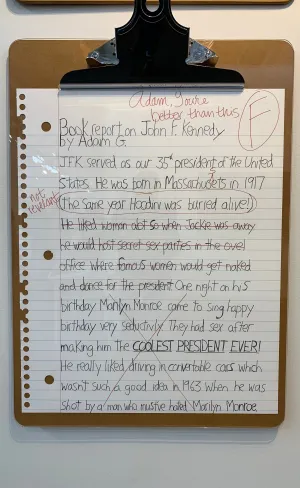 Adam, you're
better than this
F
Book report on John F. Kennedy
by Adam G.
JFK served as our 35th president of the United
States. He was born in Massachusets in 1917
s
not
relevant
(the same year Hoodini was burried alive!)
He liked woman alot so when Jackie was away
he would host secret sex parties in the ovel
office where famous women would get naked
and dance for the president One night on his
birthday Marilyn Monroe came to sing happy
birthday very seductivly They had sex after
making him The COOLEST PRESIDENT EVER!
He really liked driving in convertable cars which
wasn't such a good idea in 1963 when he was
shot by a man who mustve hated Marilyn Monroe.